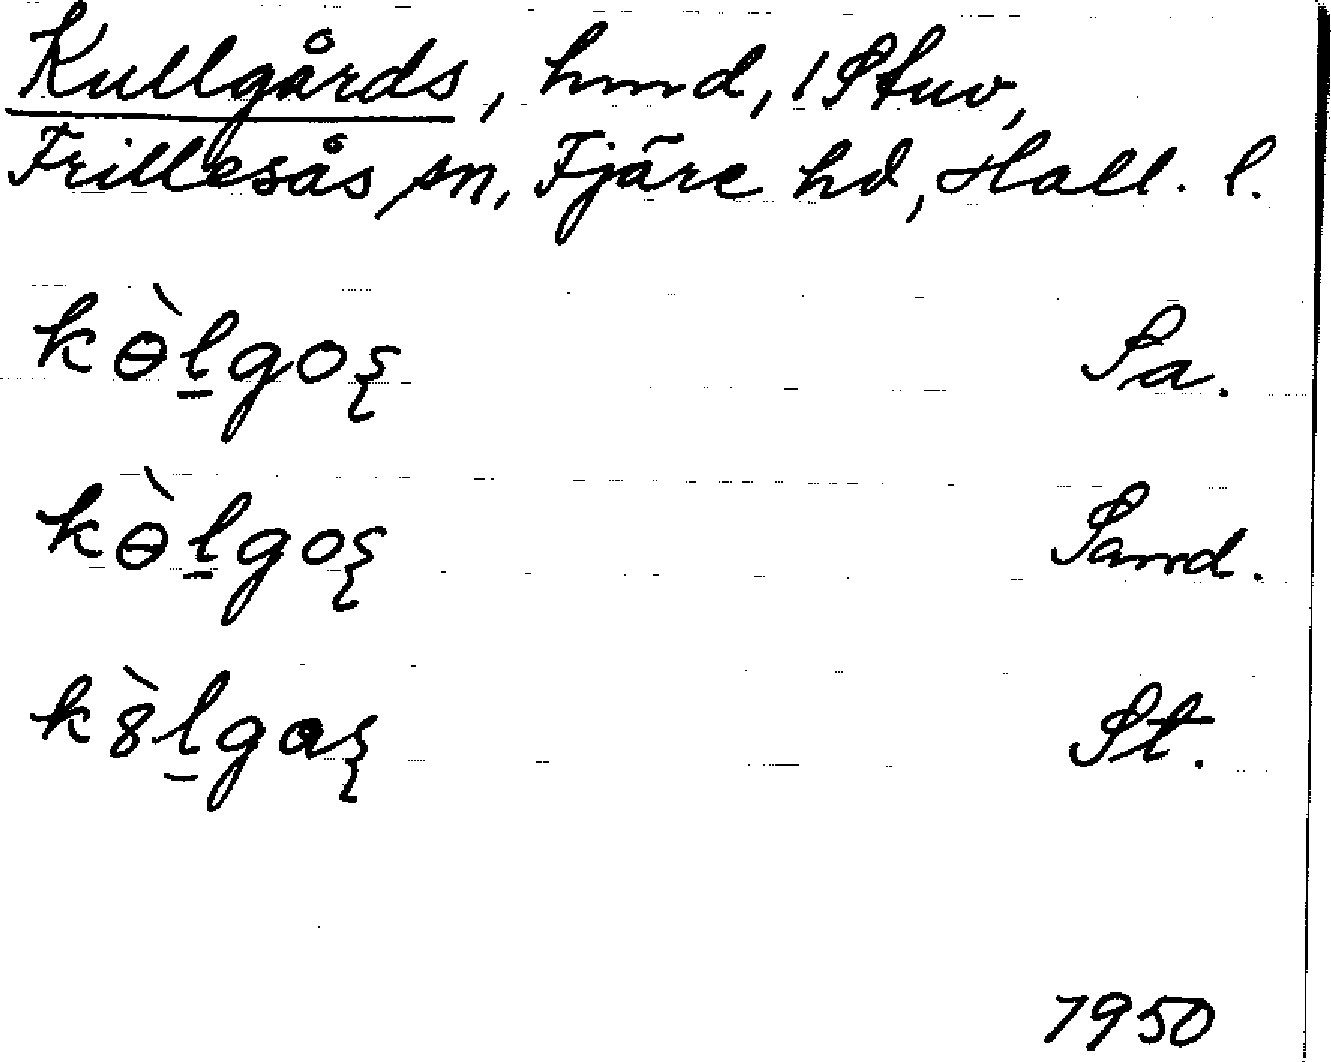 Kullgårds, hmd, 1 Stuv,
Frillesås sn, Fjäre hd, Hall. l.
kɵ̀l̠goʂ Sa.
kɵ̀l̠goʂ Sand.
k8̀l̠gɑʂ St.
1950